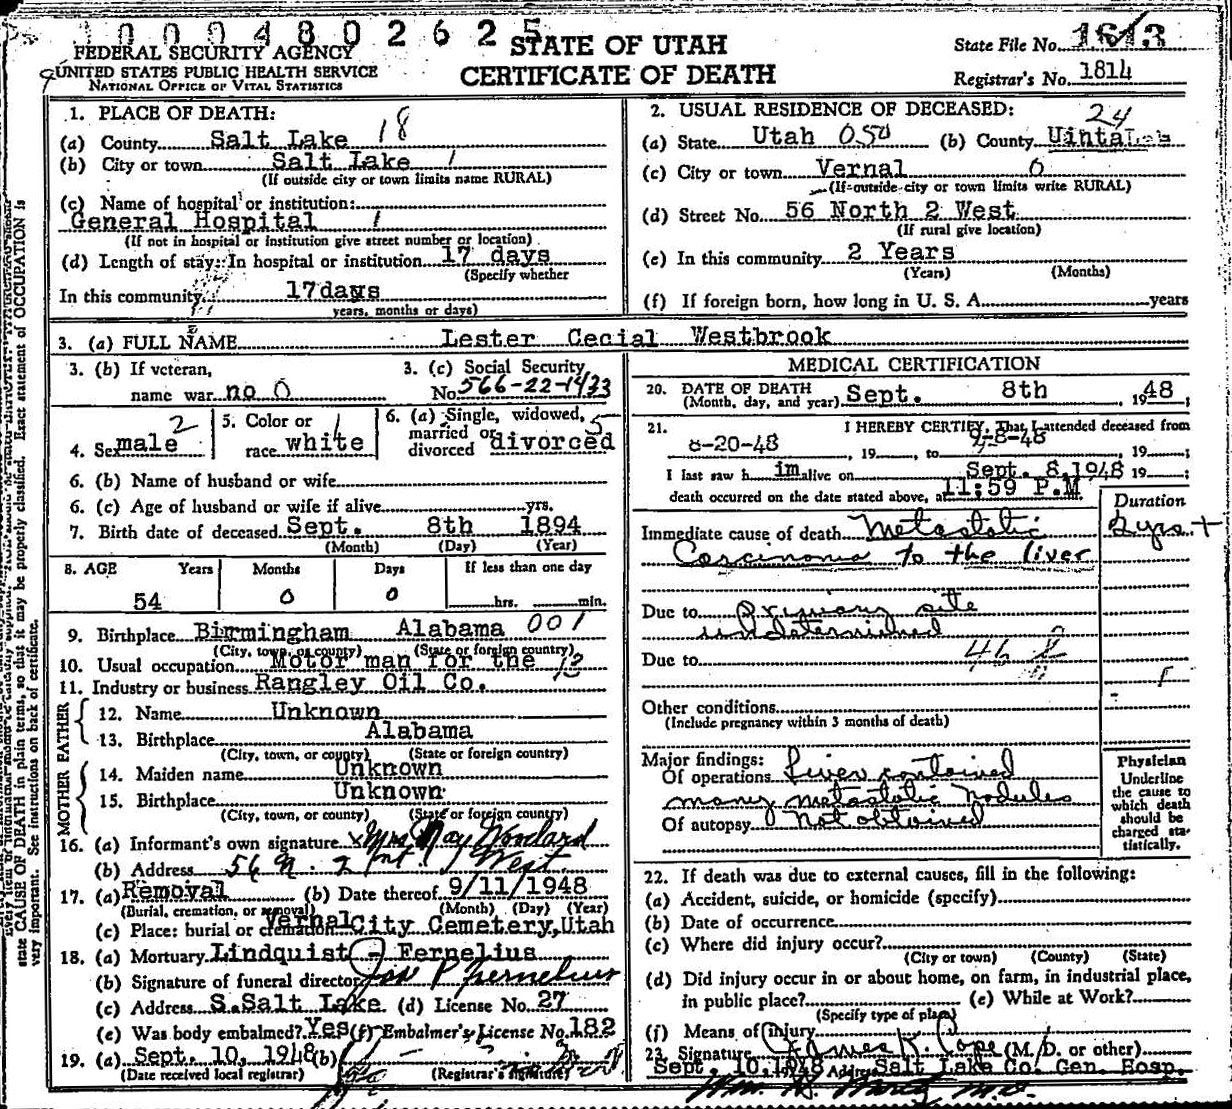 1000 4802625
FEDERAL SECURITY AGENCY
UNITED STATES PUBLIC HEALTH SERVICE
NATIONAL OFFICE OF VITAL STATISTICS
STATE OF UTAH
CERTIFICATE OF DEATH
State File No. 1613
Registrar's No. 1814
1. PLACE OF DEATH:
(a) County Salt Lake 18
(b) City or town Salt Lake 1
(If outside city or town limits name RURAL)
(c) Name of hospital or institution:
General Hospital 1
(If not in hospital or institution give street number or location)
(d) Length of stay: In hospital or institution 17 days
(Specify whether
In this community 17days
years, months or days)
2. USUAL RESIDENCE OF DECEASED:
24
(a) State Utah 050 (b) County Uinta
(c) City or town Vernal 0
(If outside city or town limits write RURAL)
(d) Street No. 56 North 2 West
(If rural give location)
(e) In this community 2 Years
(Years) (Months)
(f) If foreign born, how long in U. S. A. years
3. (a) FULL NAME Lester Cecial Westbrook
3. (b) If veteran,
name war no 0
3. (c) Social Security
No. 566-22-1433
4. Sex male 2
5. Color or 1
race white
6. (a) Single, widowed, 5
married or
divorced divorced
6. (b) Name of husband or wife
6. (c) Age of husband or wife if alive yrs.
7. Birth date of deceased Sept. 8th 1894
(Month) (Day) (Year)
8. AGE Years Months Days If less than one day
54 0 0 hrs. min.
9. Birthplace Birmingham Alabama 001
(City, town, or county) (State or foreign country)
10. Usual occupation Motor man for the
11. Industry or business Rangley Oil Co.
FATHER
12. Name Unknown
13. Birthplace Alabama
(City, town, or county) (State or foreign country)
MOTHER
14. Maiden name Unknown
15. Birthplace Unknown
(City, town, or county) (State or foreign country)
16. (a) Informant's own signature x Mrs May Woodard
(b) Address 56 N. 2 West
17. (a) Removal (b) Date thereof 9/11/1948
(Burial, cremation, or removal) (Month) (Day) (Year)
(c) Place: burial or cremation Vernal City Cemetery, Utah
18. (a) Mortuary Lindquist - Fernelius
(b) Signature of funeral director Jos P Fernelius
(c) Address S. Salt Lake (d) License No. 27
(e) Was body embalmed? Yes (f) Embalmer's License No. 182
19. (a) Sept. 10, 1948 (b)
(Date received local registrar) (Registrar's signature)
MEDICAL CERTIFICATION
20. DATE OF DEATH
(Month, day, and year) Sept. 8th , 1948 ;
21. I HEREBY CERTIFY, That I attended deceased from
8-20-48 , 19 , to 9-8-48 , 19 ;
I last saw h im alive on Sept. 8,1948 19 ;
death occurred on the date stated above, at 11:59 P.M
Duration
Immediate cause of death Metastatic 2 yrs +
Carcinoma to the liver
Due to Primary site
undetermined
Due to 46
Other conditions
(Include pregnancy within 3 months of death)
Major findings:
Of operations Liver contained
many metastatic nodules
Of autopsy Not obtained
Physician
Underline
the cause to
which death
should be
charged sta-
tistically.
22. If death was due to external causes, fill in the following:
(a) Accident, suicide, or homicide (specify)
(b) Date of occurrence
(c) Where did injury occur?
(City or town) (County) (State)
(d) Did injury occur in or about home, on farm, in industrial place,
in public place? (e) While at Work?
(Specify type of place)
(f) Means of Injury
23. Signature James K. Cope (M. D. or other)
Sept. 10,1948 Address Salt Lake Co. Gen. Hosp.
state CAUSE OF DEATH in plain terms, so that it may be properly classified. Exact statement of OCCUPATION is
very important. See instructions on back of certificate.